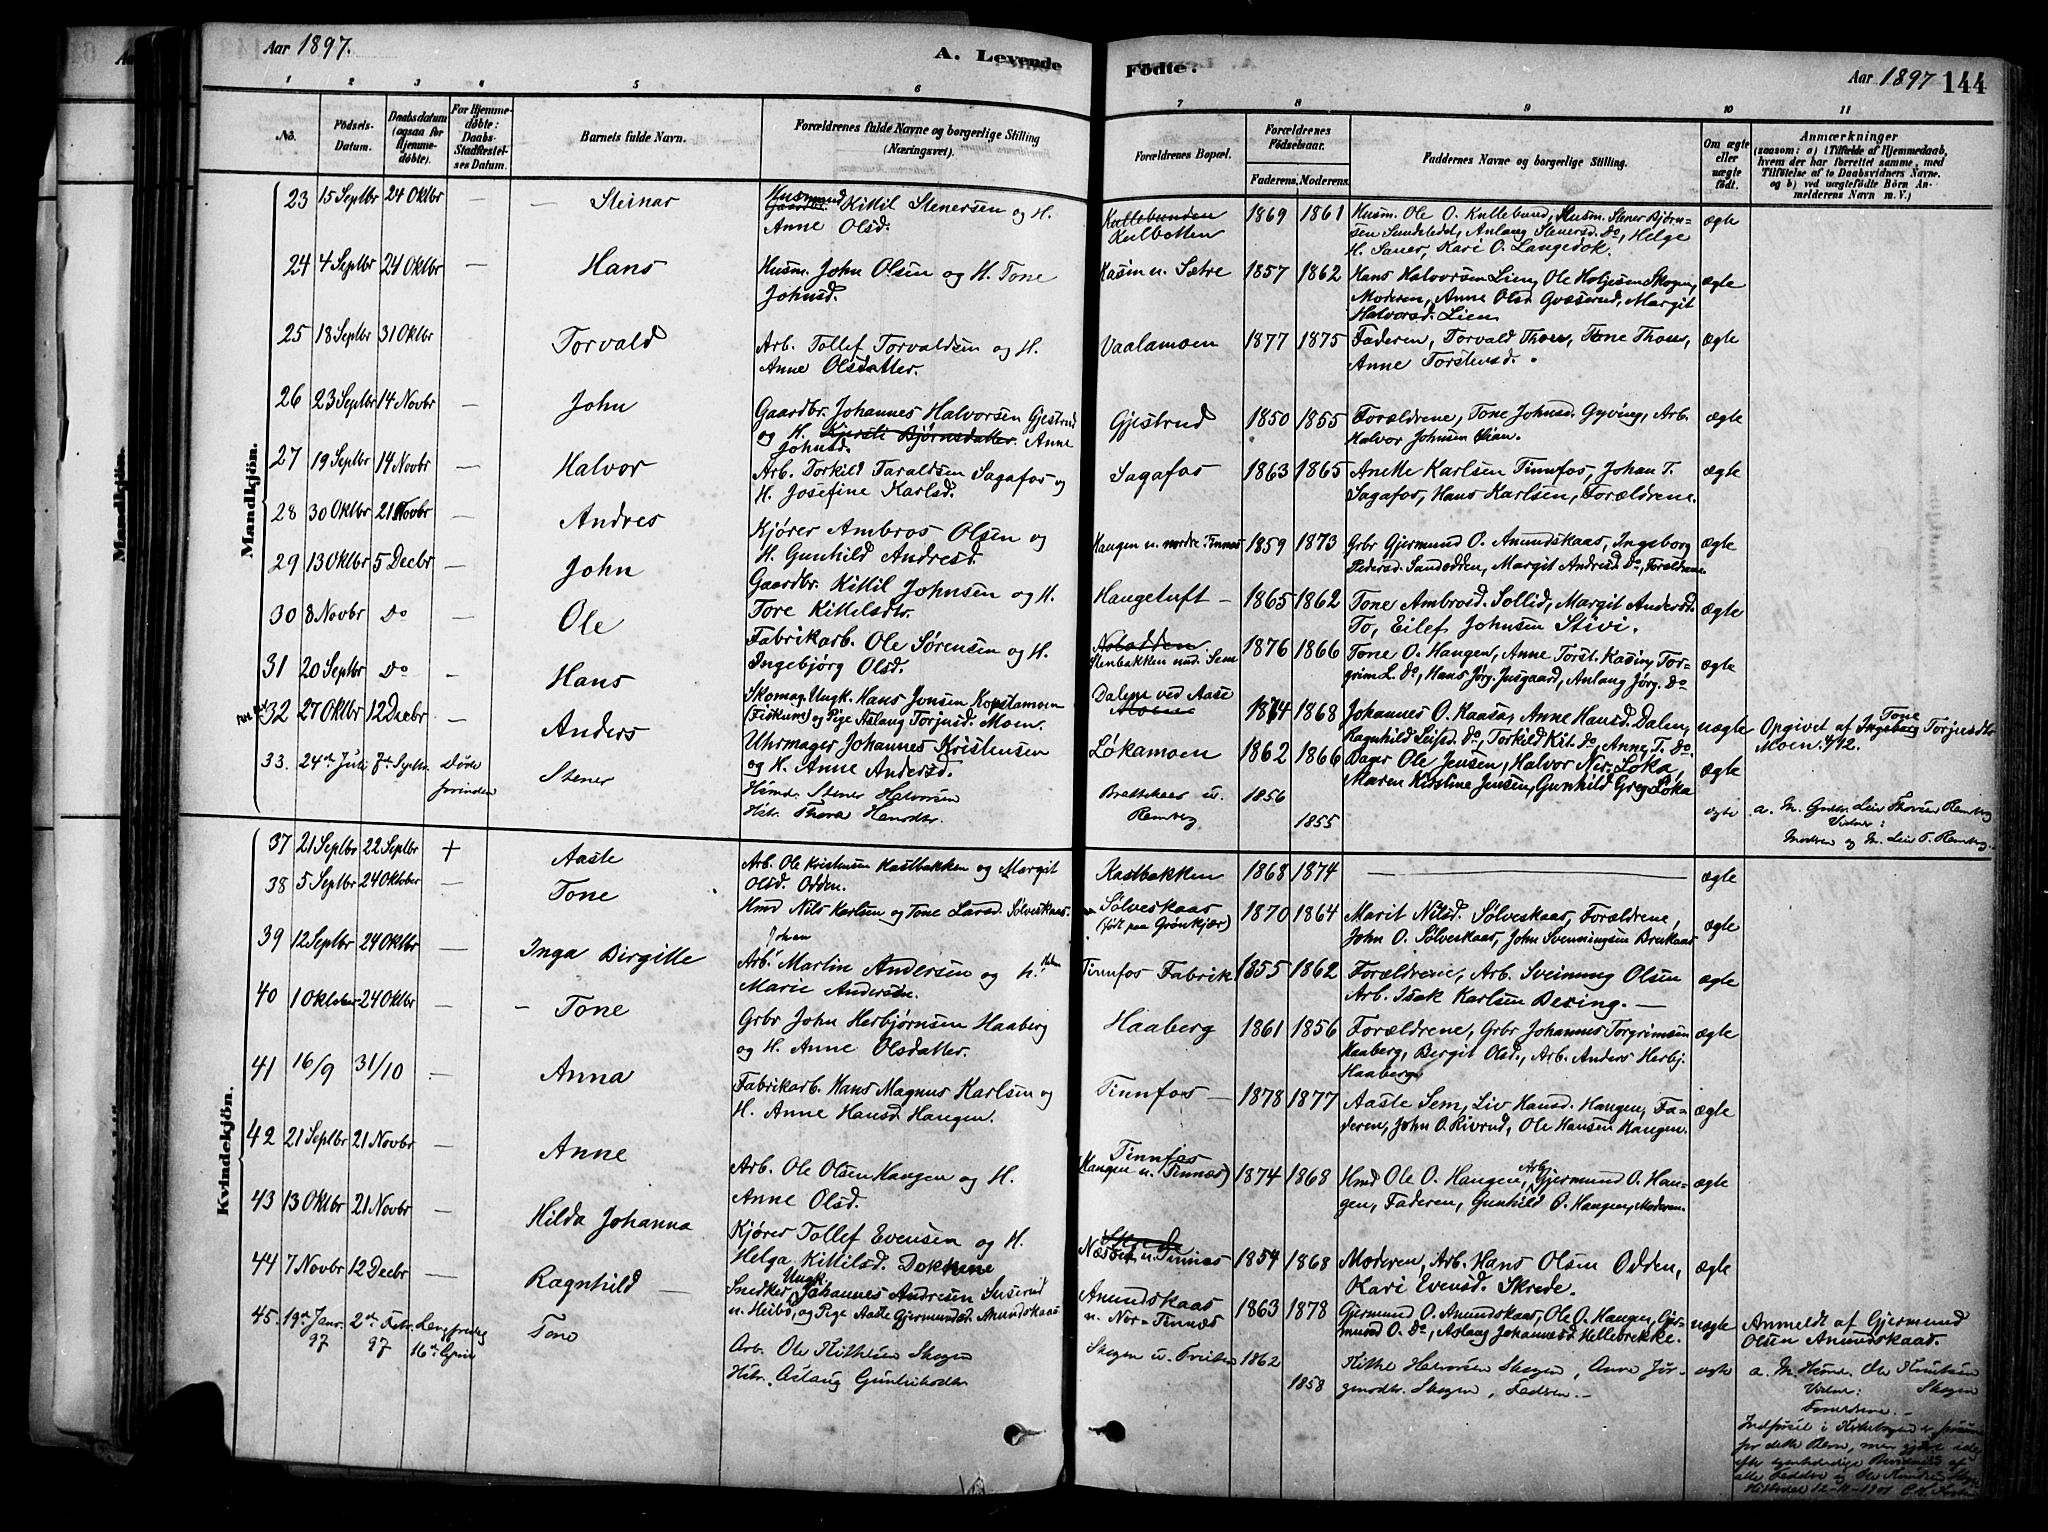 Aar 1897.
A. Levende
Födte.
Aar 1897
144
1 2 3 4 5 6 7 8 9 10 11
No.
Födsels-
Datum.
Daabsdatum
(ogsaa for
Hjemme-
döbte).
For Hjemme-
döbte:
Daabs-
Stadfæstel-
ses Datum.
Barnets fulde Navn.
Forældrenes fulde Navne og borgerlige Stilling
(Næringsvei).
Forældrenes Bopæl.
Forældrenes
Födselsaar.
Faderens. Moderens.
Faddernes Navne og borgerlige Stilling.
Om ægte
eller
uægte
födt.
Anmærkninger
(saasom: a) i Tilfælde af Hjemmedaab,
hvem der har forrettet samme, med
Tilföielse af to Daabsvidners Navne,
og b) ved uægtefödte Börn An-
melderens Navn m. V.)
Mandkjön.
23 15 Septbr 24 Oktbr — Steinar
Husmand Gaardbr. Kittil Stenersen og H.
Anne Olsd.
Kullebunden
Kulbotten
1869 1861
Husm. Ole O. Kullebund, Husm. Stener Bjørn-
sen Sundstedt, Anlaug Stenersd. Do, Helge
H. Saner, Kari O. Langedok.
ægte
24 4 Septbr 24 Oktbr — Hans
Husm. John Olsen og H. Tone
Johnsd.
Kasin u. Sætre
1857 1862
Hans Halvorsen Lien, Ole Holjesen Skogen,
Moderen, Anne Olsd Gvæserud, Margit
Halvorsd. Lien
ægte
25 18 Septbr 31 Oktbr — Torvald
Arb. Tollef Torvaldsen og H.
Anne Olsdatter.
Vaalamoen
1877 1875
Faderen, Torvald Thors, Tone Thors,
Anne Torstensd.
ægte
26 23 Septbr 14 Novbr — John
Gaardbr. Johannes Halvorsen Gjestrud
og H. Kjersti Bjørnsdatter. Anne
Johnsd.
Gjestrud
1850 1855
Forældrene, Tone Johnsd. Gyving, Arb.
Halvor Johnsen Lian.
ægte
27 19 Septbr 14 Novbr — Halvor
Arb. Torkild Taraldsen Sagafos og
H. Josefine Karlsd.
Sagafos
1863 1865
Anette Karlsen Tinnfos, Johan T.
Sagafos, Hans Karlsen, Forældrene.
ægte
28 30 Oktbr 21 Novbr — Andres
Kjører Ambros Olsen og
H. Gunhild Andresd.
Haugen u. nordre Tinnes
1859 1873
Grbr Gjermund O. Anundskaas, Ingeborg
Pedersd. Sandodden, Margit Andresd Do, Forældrene
ægte
29 13 Oktbr 5 Decbr — John
Gaardbr. Kittil Johnsen og H.
Tore Kittelsdtr.
Haugetuft —
1865 1862
Tone Ambrosd. Sollid, Margit Andersd.
To, Eilef Johnsen Stivi.
ægte
30 8 Novbr Do Ole
Fabrikarb. Ole Sørensen og H.
Ingebjørg Olsd.
Notodden
Stenbakken und. Sem
1876 1866
Tone O. Haugen, Anne Torst. Kasin, Tor-
grim L. Do, Hans Jørg. Jusgaard, Anlaug Jørg. Do
ægte
31 20 Septbr Do — Hans
Skomag. Ungk. Hans Jonsen Kopstamoen
(Fiskum) og Pige Aslaug Torjusd. Moen.
Dalene ved Aase
Moene
1874 1868
Johannes O. Kaasa, Anne Hansd. Dalen,
Ragnhild Leifsd. Do, Torkild Kit. Do, Anne T. Do
uægte
Opgivet af Ingeborg Tone Torjusdtr
Moen 4/12.
32 27 Oktbr 12 Decbr — Anders
Uhrmager Johannes Kristensen
og H. Anne Andersd.
Løkamoen
1862 1866
Bager Ole Jensen, Halvor Nir. Løka,
Maren Kirstine Jensen, Gunhild Greg. Løka
ægte
33. 24de Juli 7de Septbr. Døde
forinden
Stener
Hsmd. Stener Halvorsen
Hstr. Thora Hansdtr.
Brattekaas u.
Remberg
1856
1855
ægte
a. M. Gmbr. Leiv Thovsen Remberg
Vidner:
Moderen og M. Leiv T. Remberg.
Kvindekjön.
37 21 Septbr 22 Septbr + Aaste
Arb. Ole Kristensen Kastbakken og Margit
Olsd. Odden.
Kastbakken
1868 1874
ægte
38 5 Septbr 24 Oktober — Tone
Hmd Nils Karlsen og Tone Larsd. Sølveskaas.
Sølveskaas
(født paa Grønkjær)
1870 1864
Marit Nilsd. Sølveskaas, Forældrene,
John O. Sølveskaas, John Svenningsen Brekaas
ægte
39 12 Septbr 24 Oktbr — Inga Birgitte
Johan
Arb. Martin Andersen og H.
Marie Andersen.
Tinnfos Fabrik
1855 1862
Forældrene, Arb. Sveinung Olsen
Arb. Isak Karlsen Bexing. —
ægte
40 1 Oktober 24 Oktbr — Tone
Grbr John Herbjørnsen Haaberg
og H. Anne Olsdatter.
Haaberg
1861 1856
Forældrene, Grbr Johannes Torgrimsen
Haaberg, Birgit Olsd., Arb. Anders Herbj.
Haaberg
ægte
41 16/9 31/10 — Anna
Fabrikarb. Hans Magnus Karlsen og
H. Anne Hansd. Haugen.
Tinnfos —
1878 1877
Aaste Sem, Liv Hansd. Haugen, Fa-
deren, John O. Rivrud, Ole Hansen Haugen.
ægte
42 21 Septbr 21 Novbr — Anne
Arb. Ole Olsen Haugen og H.
Anne Olsd.
Tinnfos
(Haugen u. Tinnæs)
1874 1868
Hmd Ole O. Haugen, Arb. Gjermund O. Hau-
gen, Faderen, Gunhild O. Haugen, Moderen.
ægte
43 13 Oktbr 21 Novbr — Hilda Johanna
Kjører Tollef Evensen og H.
Helga Kittilsd. Dokkene
Skrede
u. Tinnæs
1854 1868
Moderen, Arb. Hans Olsen Odden,
Kari Evensd. Skrede.
ægte
44 7 Novbr 12 Decbr — Ragnhild
Snedker Ungk. Johannes Andresen Suserud
u. Heibø, og Pige Aaste Gjermundsd. Anundskaas
Anundskaas
u. Nor-Tinnæs
1863 1878
Gjermund O. Anundskaas, Ole O. Haugen, Gjer-
mund O. Do, Aslaug Johannesd. Hellebrekke.
uægte
Anmeldt af Gjermund
Olsen Anundskaas.
45. 19de Janr. 97 2den Febr. 97 Langfredag
16de April
Tone
Arb. Ole Kittelsen Skogen
Hstr. Aslaug Gunleiksdtr
Skogen u. Tveiten
1862
1858
Kittel Halvorsen Skogen, Anne Jør-
gensdtr. Skogen, Fadren. —
ægte
a. M. Hsmd. Ole Knutsen
Vidne: Skogen
Forældrene. —
Indførsel i Kirkebogen er forsømt
for dette Barn, men gjort idag